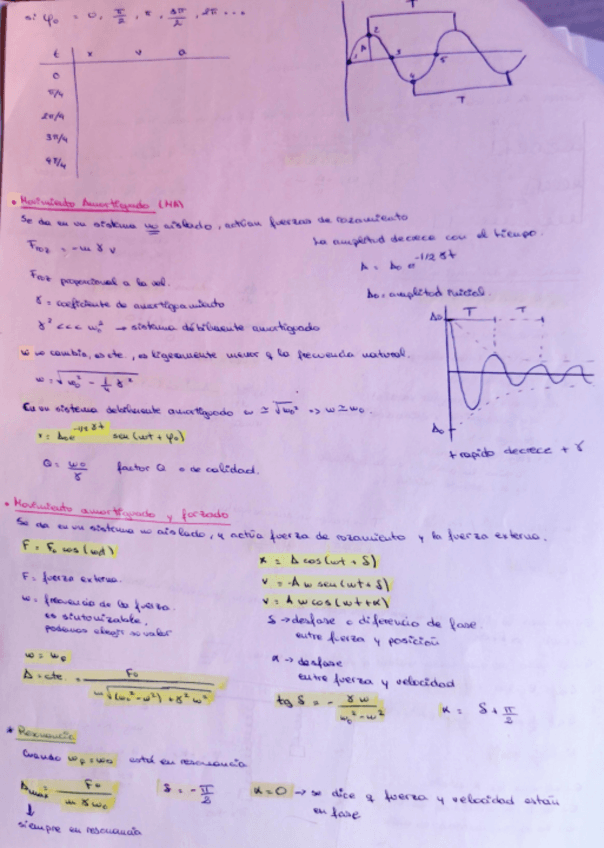 si φ₀ = 0, π/2, π, 3π/2, 2π...
t x v a
0
π/4
2π/4
3π/4
4π/4
T
A
1 2 3 4 5
T
• Movimiento Amortiguado (MA)
Se da en un sistema no aislado, actúan fuerzas de rozamiento
F roz = -m γ v
La amplitud decrece con el tiempo.
A = A₀ e^(-1/2 γt)
F roz proporcional a la vel.
A₀ = amplitud inicial.
γ = coeficiente de amortiguamiento
γ² <<< ω₀² → sistema débilmente amortiguado
ω no cambia, es cte., es ligeramente menor q la frecuencia natural.
ω = √(ω₀² - 1/4 γ²)
En un sistema debilmente amortiguado ω ≅ √ω₀² => ω ≅ ω₀
x = A₀e^(-1/2 γt) sen (ωt + φ₀)
Q = ω₀/γ factor Q o de calidad.
A₀ T T
A₀
+ rapido decrece + γ
• Movimiento amortiguado y forzado
Se da en un sistema no aislado, y actúa fuerza de rozamiento y la fuerza externa.
F = F₀ cos (ωt)
x = A cos (ωt + δ)
F = fuerza externa.
v = -A ω sen (ωt + δ)
v = A ω cos (ωt + α)
ω = frecuencia de la fuerza.
es sintonizable,
podemos elegir su valor
δ → desfase o diferencia de fase.
entre fuerza y posición
ω = ω₀
α → desfase
entre fuerza y velocidad
A = cte. = F₀ / m√((ω₀² - ω²) + γ² ω²)
tg δ = - γ ω / ω₀² - ω²
α = δ + π/2
* Resonancia
Cuando ω_F = ω₀ está en resonancia
A max = F₀ / m γ ω₀
δ = - π/2
α = 0 → se dice q fuerza y velocidad están
en fase.
↓
siempre en resonancia